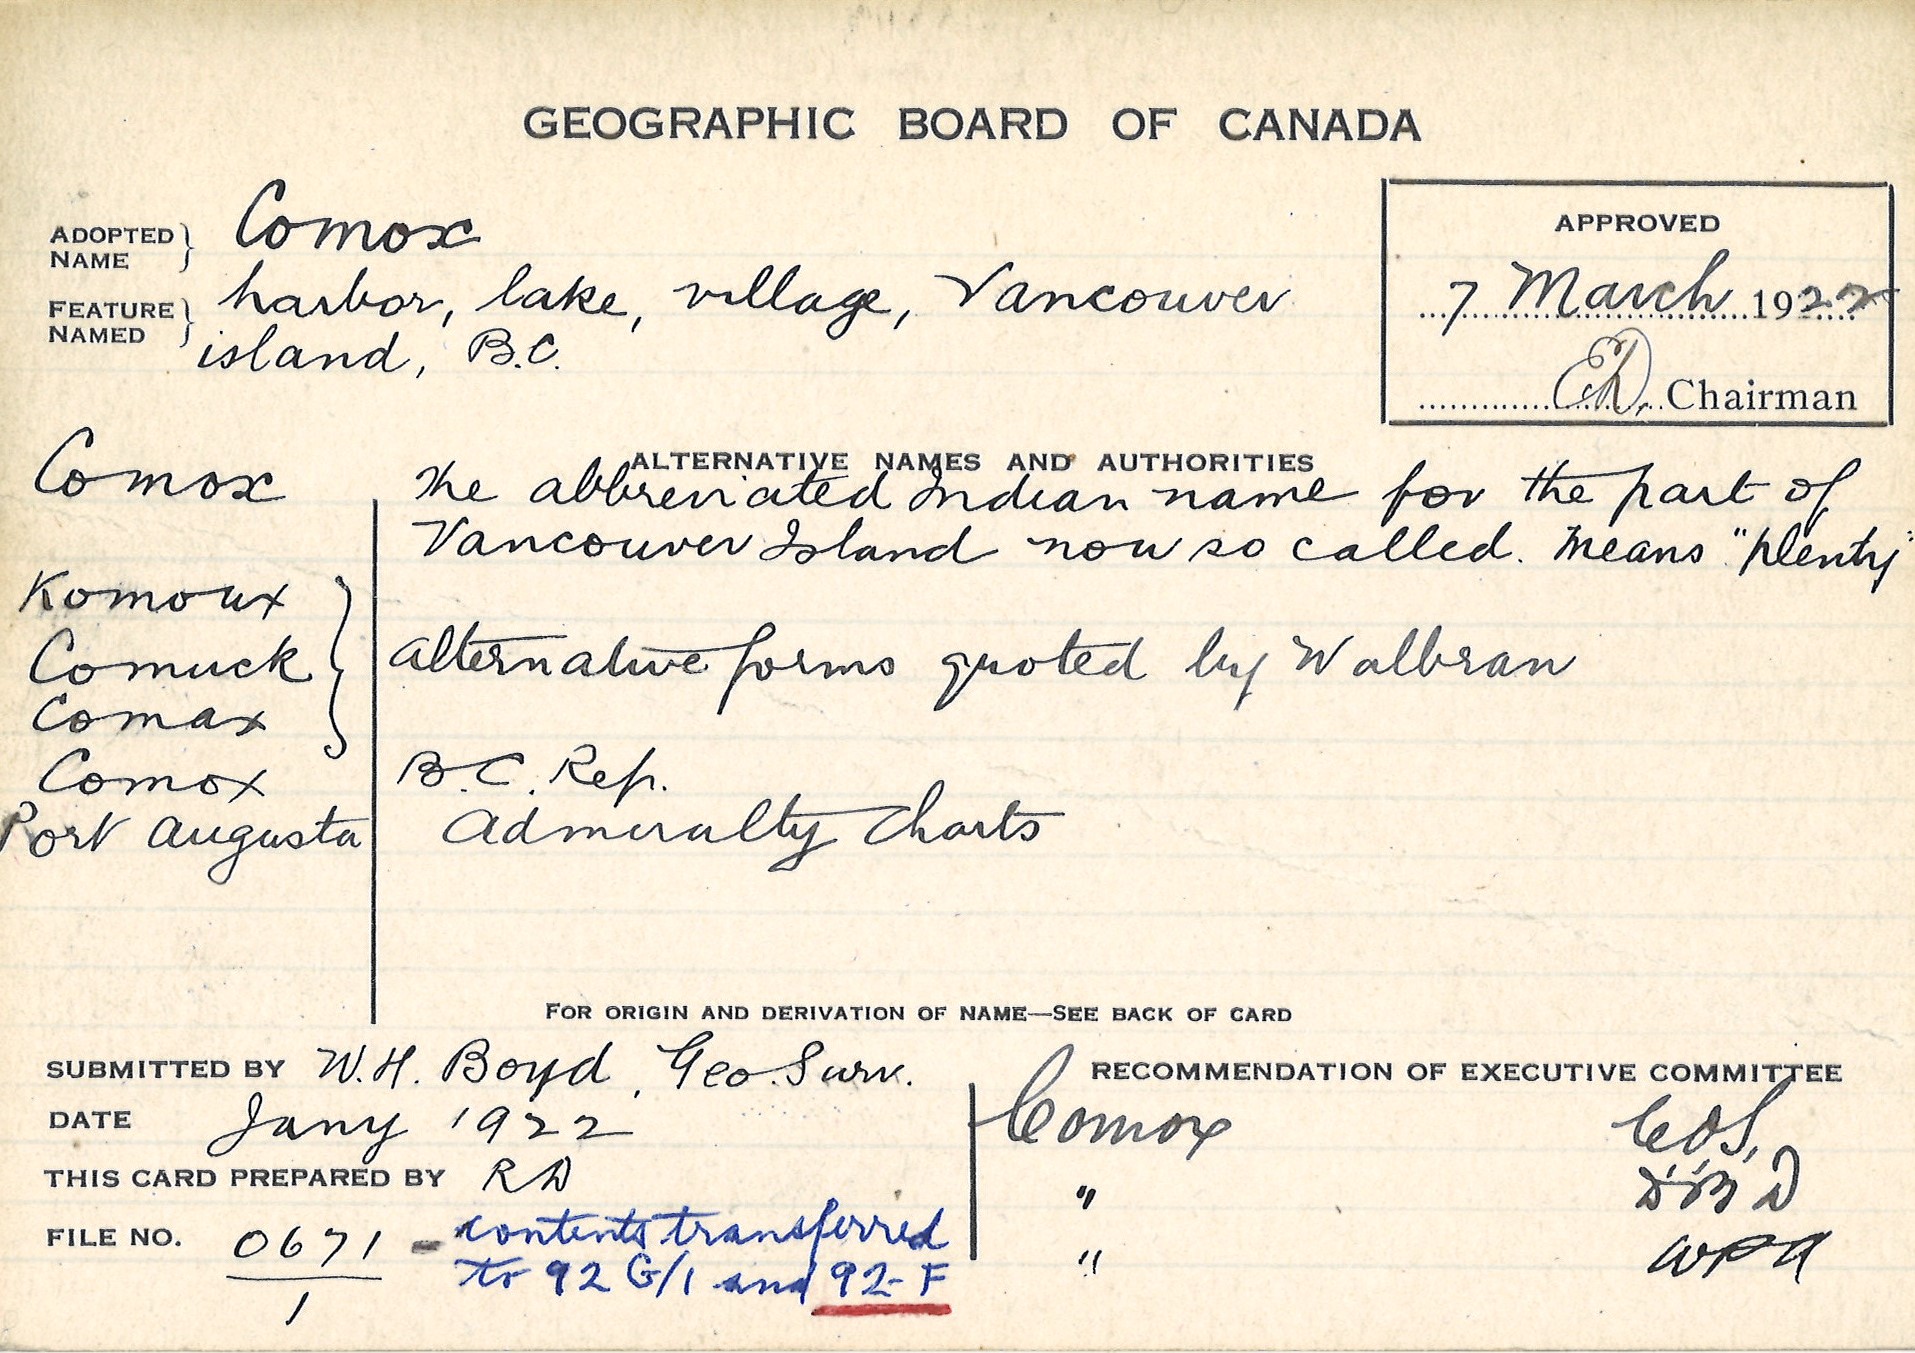 GEOGRAPHIC BOARD OF CANADA
ADOPTED NAME } Comox
FEATURE NAMED } harbor, lake, village, Vancouver
island, B.C.
APPROVED
7 March 1922
Chairman
ALTERNATIVE NAMES AND AUTHORITIES
Comox The abbreviated Indian name for the part of
Vancouver Island now so called. Means "plenty"
Komoux
Comuck } alternative forms quoted by Walbran
Comax
Comox B.C. Rep.
Port Augusta Admiralty Charts
FOR ORIGIN AND DERIVATION OF NAME—SEE BACK OF CARD
SUBMITTED BY W.H. Boyd, Geo. Surv.
DATE Jany 1922
THIS CARD PREPARED BY RD
FILE NO. 0671 - contents transferred
1 to 92 G/1 and 92-F
RECOMMENDATION OF EXECUTIVE COMMITTEE
Comox
"
"